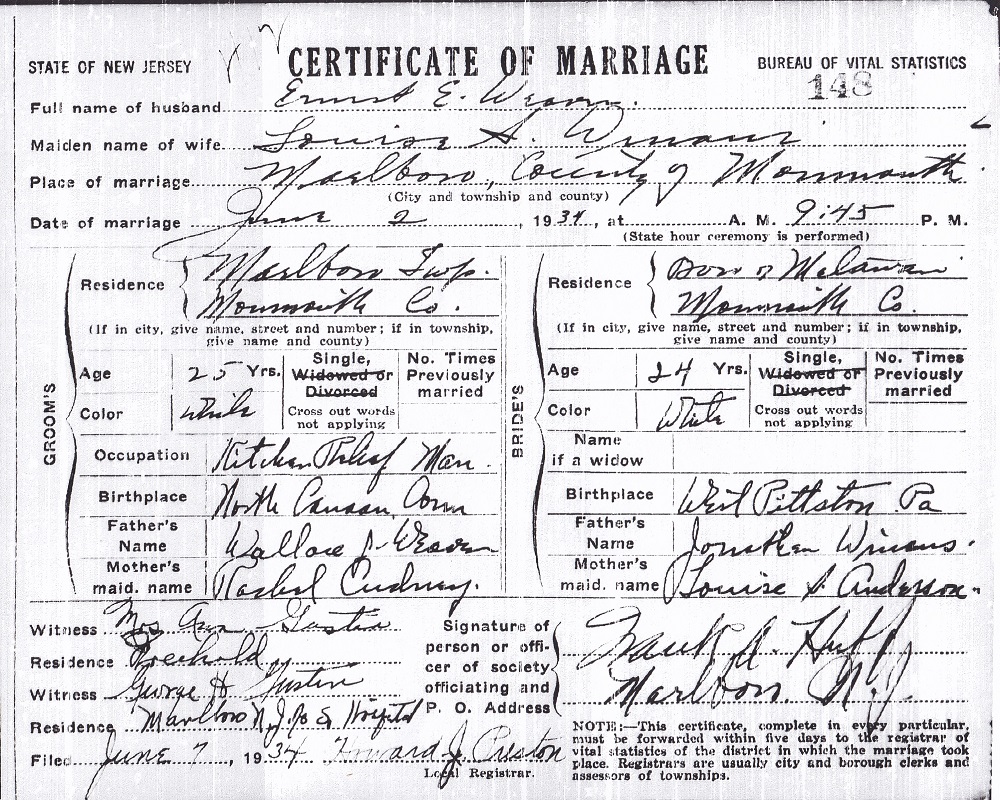 STATE OF NEW JERSEY
CERTIFICATE OF MARRIAGE
BUREAU OF VITAL STATISTICS
148
Full name of husband Ernest E. Weaver.
Maiden name of wife Louise A. Winans
Place of marriage Marlboro, County of Monmouth.
(City and township and county)
Date of marriage June 2, 1934, at A. M. 9:45 P. M.
(State hour ceremony is performed)
GROOM'S
Residence Marlboro Twp.
Monmouth Co.
(If in city, give name, street and number; if in township,
give name and county)
Age 25 Yrs.
Single,
Widowed or
Divorced
Cross out words
not applying
No. Times
Previously
married
Color White
Occupation Kitchen Man.
Birthplace North Canaan Conn
Father's
Name Wallace J. Weaver
Mother's
maid. name Rachel Cudney.
BRIDE'S
Residence Boro of Matawan
Monmouth Co.
(If in city, give name, street and number; if in township,
give name and county)
Age 24 Yrs.
Single,
Widowed or
Divorced
Cross out words
not applying
No. Times
Previously
married
Color White
Name
if a widow
Birthplace West Pittston Pa
Father's
Name Jonathan Winans.
Mother's
maid. name Louise S. Anderson.
Witness Mrs Ann Gustin
Residence Freehold
Witness George H Gustin
Residence Marlboro N.J. Hospital
Filed June 7, 1934 Howard J. Preston
Local Registrar.
Signature of
person or offi-
cer of society
officiating and
P. O. Address
Frank A. Huff
Marlboro. N.J.
NOTE:—This certificate, complete in every particular,
must be forwarded within five days to the registrar of
vital statistics of the district in which the marriage took
place. Registrars are usually city and borough clerks and
assessors of townships.